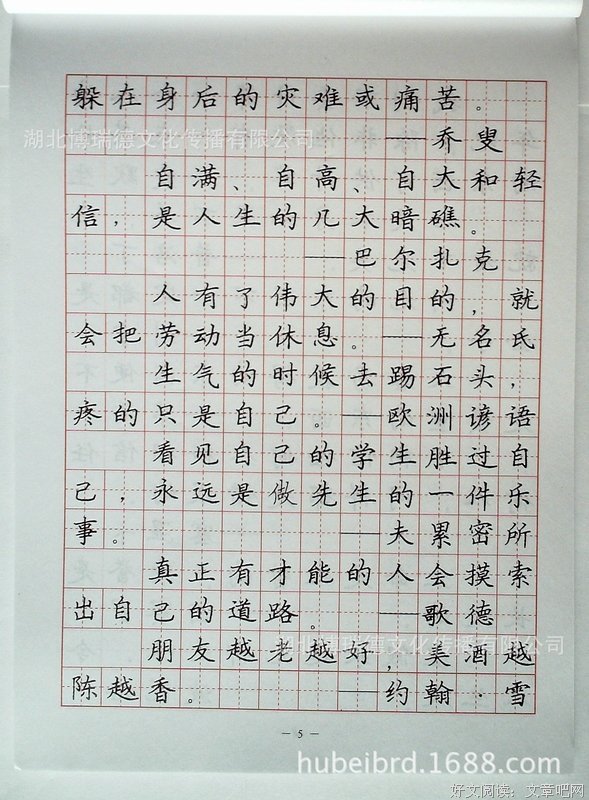 躲在身后的灾难或痛苦。
湖北博瑞德文化传播有限公司
——乔叟
自满、自高、自大和轻
信，是人生的几大暗礁。
——巴尔扎克
人有了伟大的目的，就
会把劳动当休息。——无名氏
生气的时候去踢石头，
疼的只是自己。——欧洲谚语
看见自己的学生胜过自
己，永远是做先生的一件乐
事。——夫累密所
真正有才能的人会摸索
出自己的道路。——歌德
湖北博瑞德文化传播有限公司
朋友越老越好，美酒越
陈越香。——约翰·雪
— 5 —
hubeibrd.1688.com
好文阅读：文章吧网